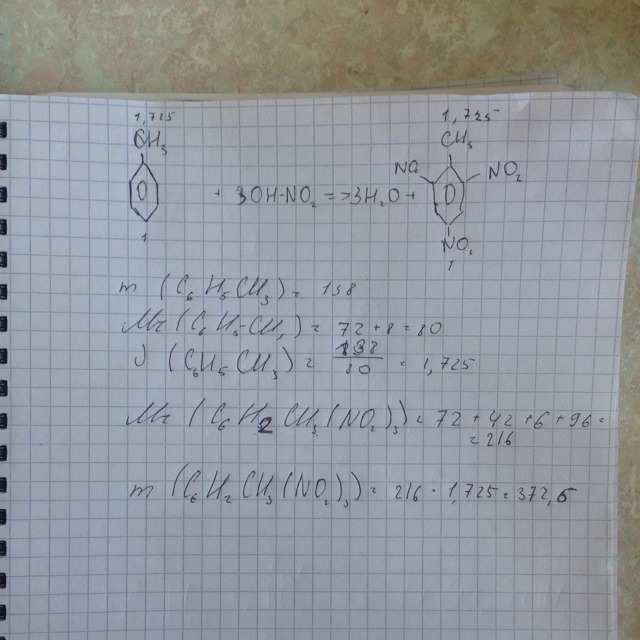 1,725 1,725
CH₃ CH₃
NO₂ NO₂
+ 3OH-NO₂ =>3H₂O +
1 NO₂
1
m (C₆H₅CH₃) = 138
Mr (C₆H₅-CH₃) = 72 + 8 = 80
ν (C₆H₅CH₃) = 138/80 = 1,725
Mr (C₆H₂CH₃(NO₂)₃) = 72 + 42 + 6 + 96 =
= 216
m (C₆H₂CH₃(NO₂)₃) = 216 · 1,725 = 372,6